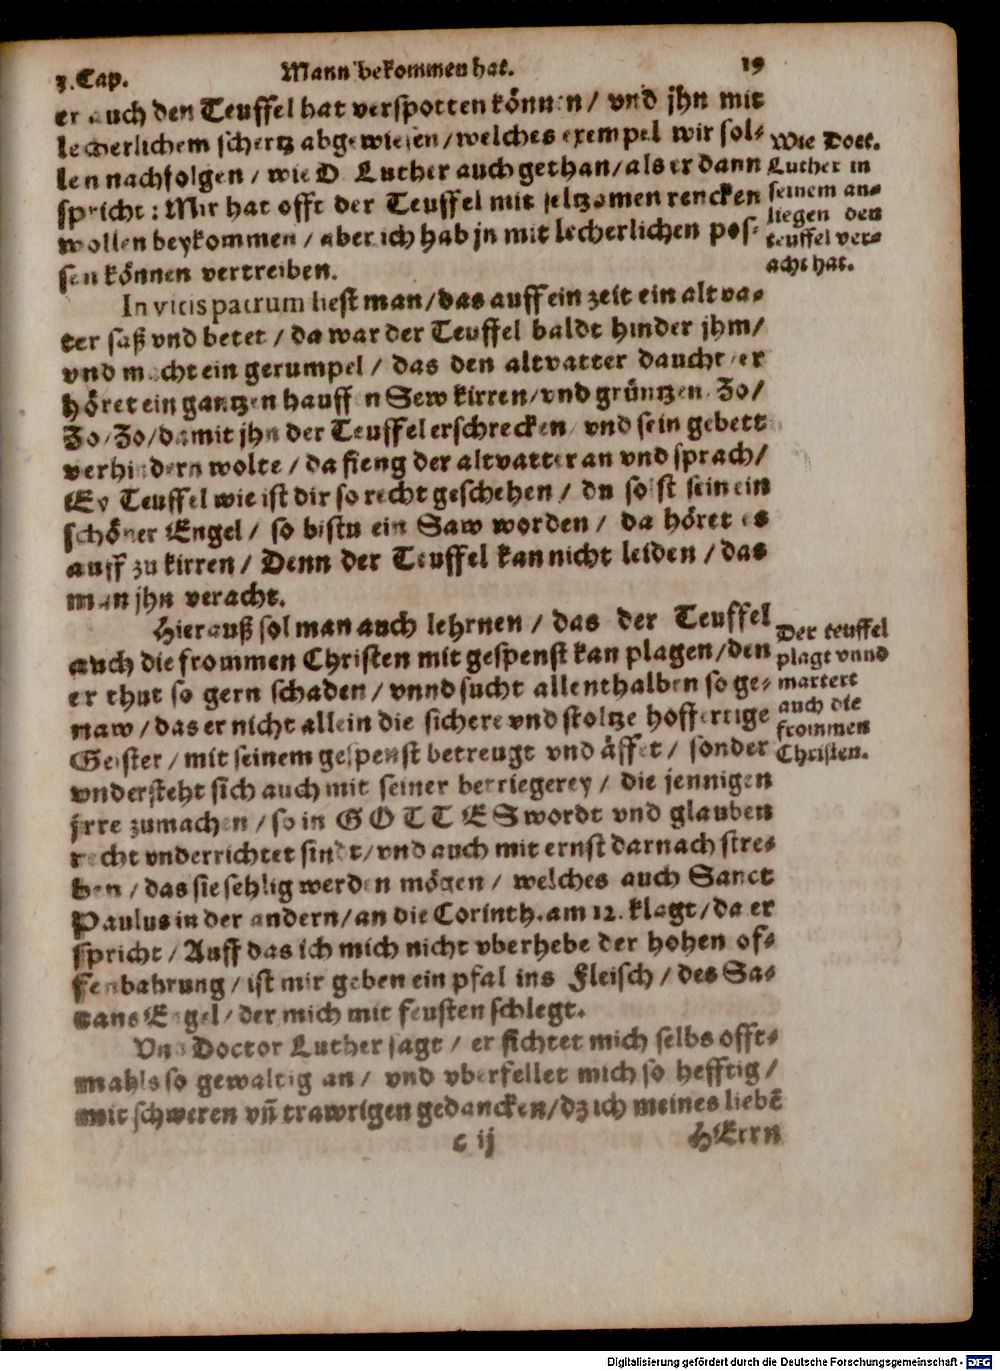 3. Cap. Mann bekommen hat. 19
er auch den Teuffel hat verspotten können / vnd jhn mit
lecherlichem schertz abgewiesen / welches exempel wir sol-
len nachfolgen / wie D. Luther auch gethan / als er dann
spricht: Mir hat offt der Teuffel mit seltzamen rencken
wollen beykommen / aber ich hab jn mit lecherlichen pos-
sen können vertreiben.
Wie Doct.
Luther in
seinem an-
liegen den
teuffel ver-
acht hat.
In vitis patrum liest man / das auff ein zeit ein altva-
ter saß vnd betet / da war der Teuffel baldt hinder jhm /
vnd macht ein gerumpel / das den altvatter daucht / er
höret ein gantzen hauffen Sew kirren / vnd grüntzen / Zo /
Zo / Zo / damit jhn der Teuffel erschrecken / vnd sein gebett
verhindern wolte / da fieng der altvatter an vnd sprach /
Ey Teuffel wie ist dir so recht geschehen / du solst sein ein
schöner Engel / so bistu ein Saw worden / da höret es
auff zu kirren / Denn der Teuffel kan nicht leiden / das
man jhn veracht.
Hierauß sol man auch lehrnen / das der Teuffel
auch die frommen Christen mit gespenst kan plagen / den
er thut so gern schaden / vnnd sucht allenthalben so ge-
naw / das er nicht allein die sichere vnd stoltze hoffertige
Geister / mit seinem gespenst betreugt vnd äffet / sonder
vndersteht sich auch mit seiner betriegerey / die jennigen
jrre zumachen / so in GOTTES wordt vnd glauben
recht vnderrichtet sindt / vnd auch mit ernst darnach stre-
ben / das sie sehlig werden mögen / welches auch Sanct
Paulus in der andern / an die Corinth. am 12. klagt / da er
spricht / Auff das ich mich nicht vberhebe der hohen of-
fenbahrung / ist mir geben ein pfal ins Fleisch / des Sa-
tans Engel / der mich mit feusten schlegt.
Der teuffel
plagt vnnd
martert
auch die
frommen
Christen.
Vnd Doctor Luther sagt / er fichtet mich selbs offt-
mahls so gewaltig an / vnd vberfellet mich so hefftig /
mit schweren vñ trawrigen gedancken / dz ich meines liebẽ
c ij HErrn
Digitalisierung gefördert durch die Deutsche Forschungsgemeinschaft - DFG